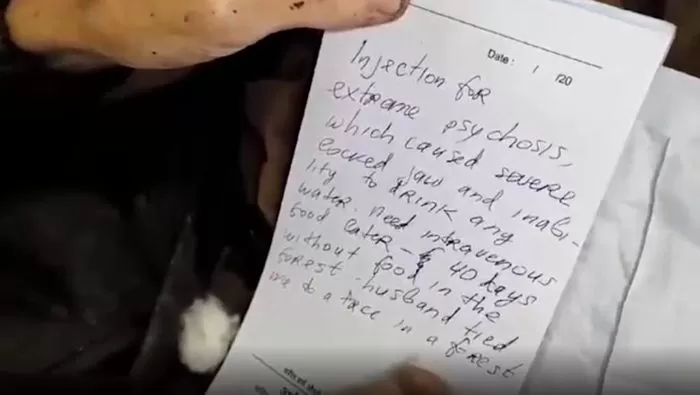 Date : / /20
Injection for
extreme psychosis,
which caused severe
locked jaw and inabi-
lity to drink any
water. Need intravenous
food later - 40 days
without food in the
forest. husband tied
me to a tree in a forest